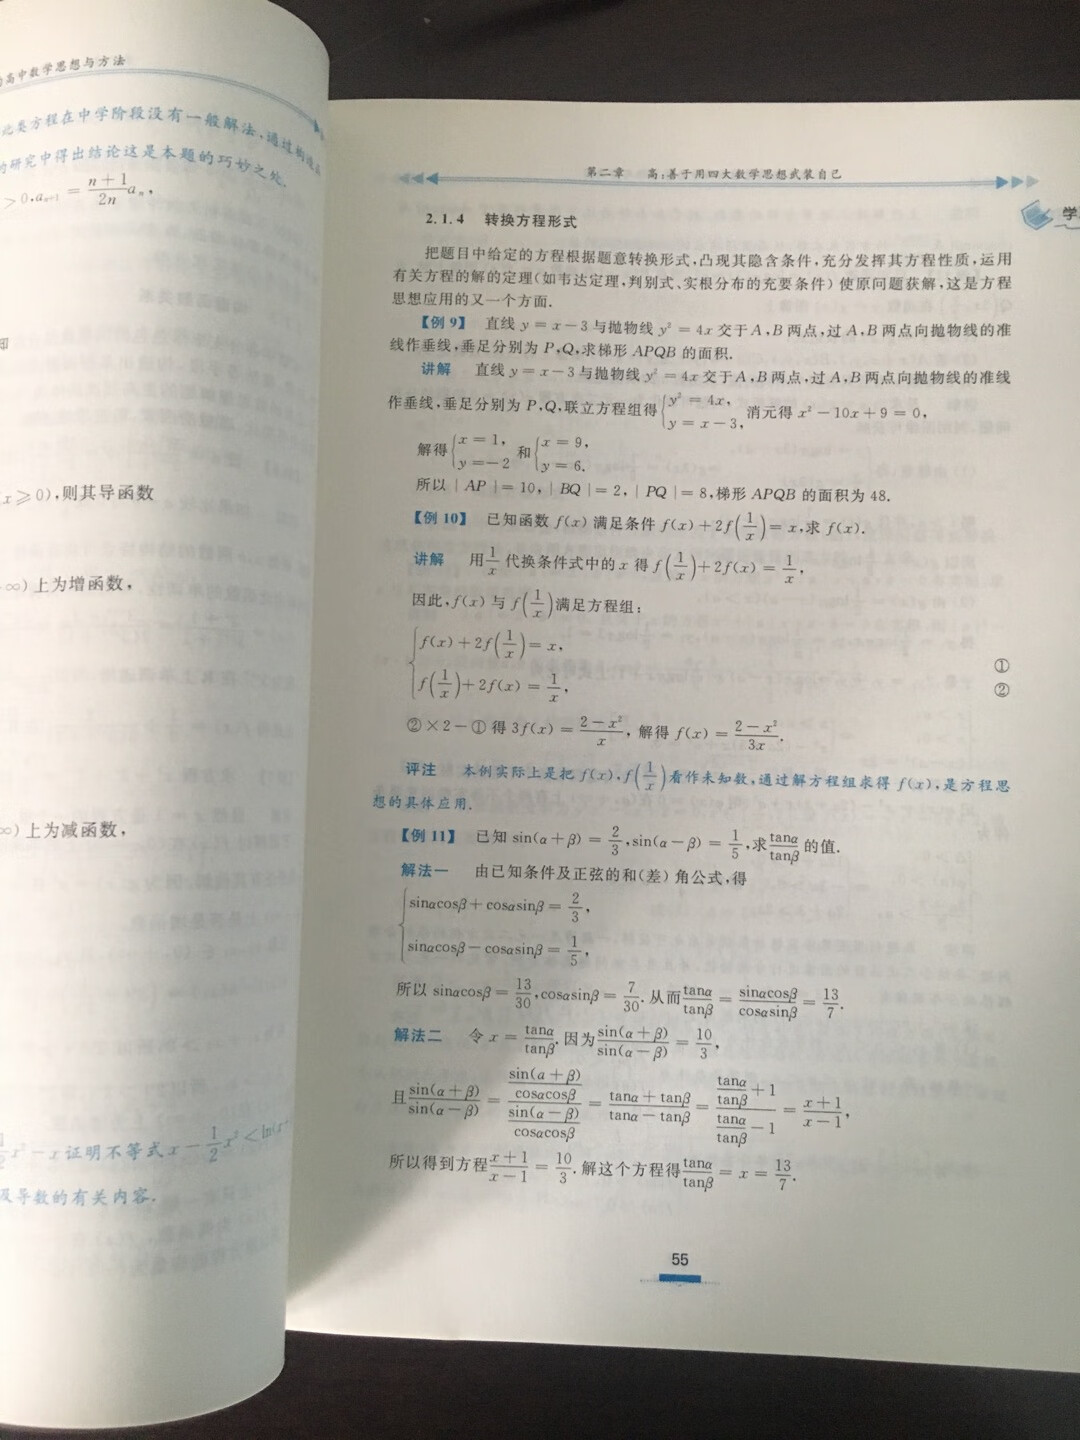 高中数学思想与方法
此类方程在中学阶段没有一般解法,通过构造
的研究中得出结论这是本题的巧妙之处.
>0,aₙ₊₁ = (n+1)/(2n) aₙ,
知
x⩾0),则其导函数
∞)上为增函数,
∞)上为减函数,
x² − x 证明不等式 x − 1/2 x² < ln(x
及导数的有关内容.
第二章 高:善于用四大数学思想武装自己
学
2.1.4 转换方程形式
把题目中给定的方程根据题意转换形式,凸现其隐含条件,充分发挥其方程性质,运用
有关方程的解的定理(如韦达定理,判别式、实根分布的充要条件)使原问题获解,这是方程
思想应用的又一个方面.
【例9】 直线 y = x − 3 与抛物线 y² = 4x 交于 A,B 两点,过 A,B 两点向抛物线的准
线作垂线,垂足分别为 P,Q,求梯形 APQB 的面积.
讲解 直线 y = x − 3 与抛物线 y² = 4x 交于 A,B 两点,过 A,B 两点向抛物线的准线
作垂线,垂足分别为 P,Q,联立方程组得{y² = 4x, y = x − 3, 消元得 x² − 10x + 9 = 0,
解得{x = 1, y = −2 和{x = 9, y = 6.
所以 | AP | = 10, | BQ | = 2, | PQ | = 8,梯形 APQB 的面积为 48.
【例10】 已知函数 f(x) 满足条件 f(x) + 2f(1/x) = x,求 f(x).
讲解 用 1/x 代换条件式中的 x 得 f(1/x) + 2f(x) = 1/x,
因此,f(x) 与 f(1/x) 满足方程组:
f(x) + 2f(1/x) = x, ①
f(1/x) + 2f(x) = 1/x, ②
②×2−① 得 3f(x) = (2−x²)/x, 解得 f(x) = (2−x²)/(3x).
评注 本例实际上是把 f(x),f(1/x) 看作未知数,通过解方程组求得 f(x),是方程思
想的具体应用.
【例11】 已知 sin(α+β) = 2/3, sin(α−β) = 1/5,求 tanα/tanβ 的值.
解法一 由已知条件及正弦的和(差)角公式,得
sinαcosβ + cosαsinβ = 2/3,
sinαcosβ − cosαsinβ = 1/5,
所以 sinαcosβ = 13/30, cosαsinβ = 7/30. 从而 tanα/tanβ = sinαcosβ/cosαsinβ = 13/7.
解法二 令 x = tanα/tanβ. 因为 sin(α+β)/sin(α−β) = 10/3,
且 sin(α+β)/sin(α−β) = (sin(a+β)/cosαcosβ)/(sin(α−β)/cosαcosβ) = (tanα+tanβ)/(tanα−tanβ) = (tanα/tanβ + 1)/(tanα/tanβ − 1) = (x+1)/(x−1),
所以得到方程 (x+1)/(x−1) = 10/3. 解这个方程得 tanα/tanβ = x = 13/7.
55